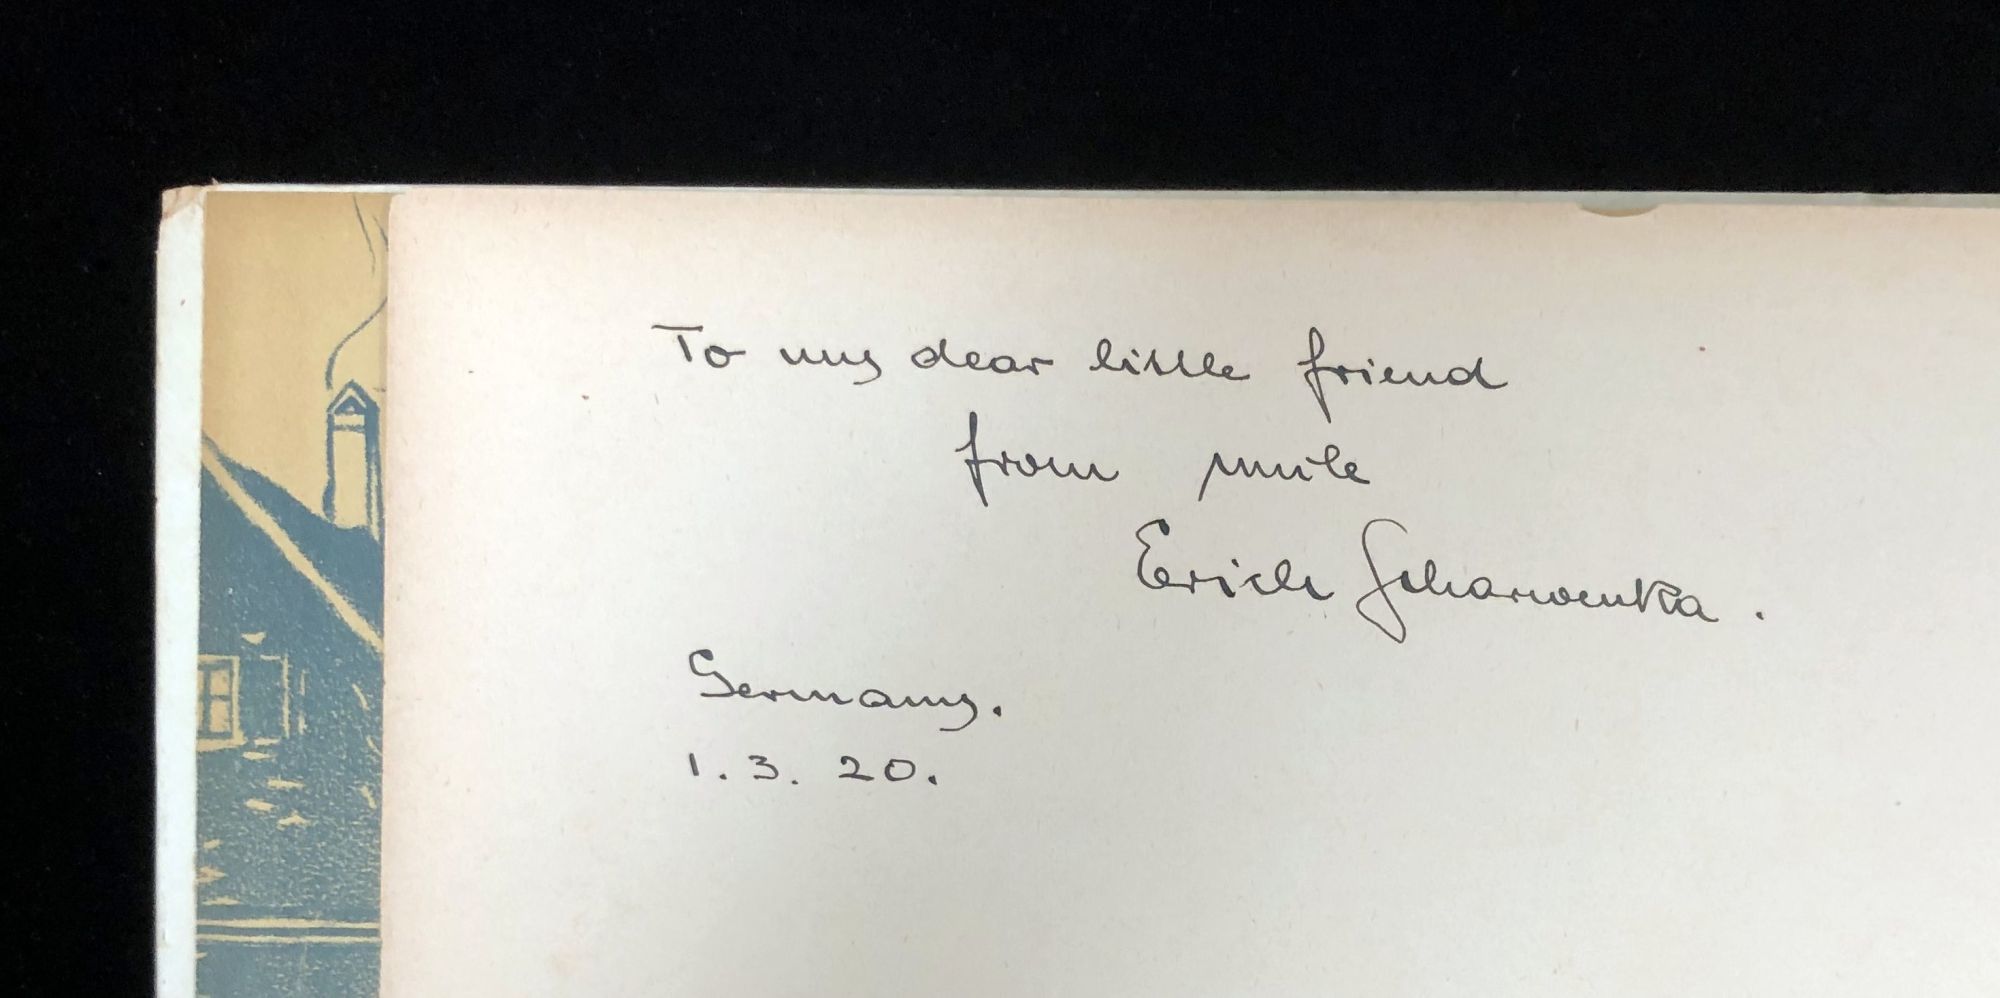 To my dear little friend
from
Erich Scharwenka.
Germany.
1. 3. 20.